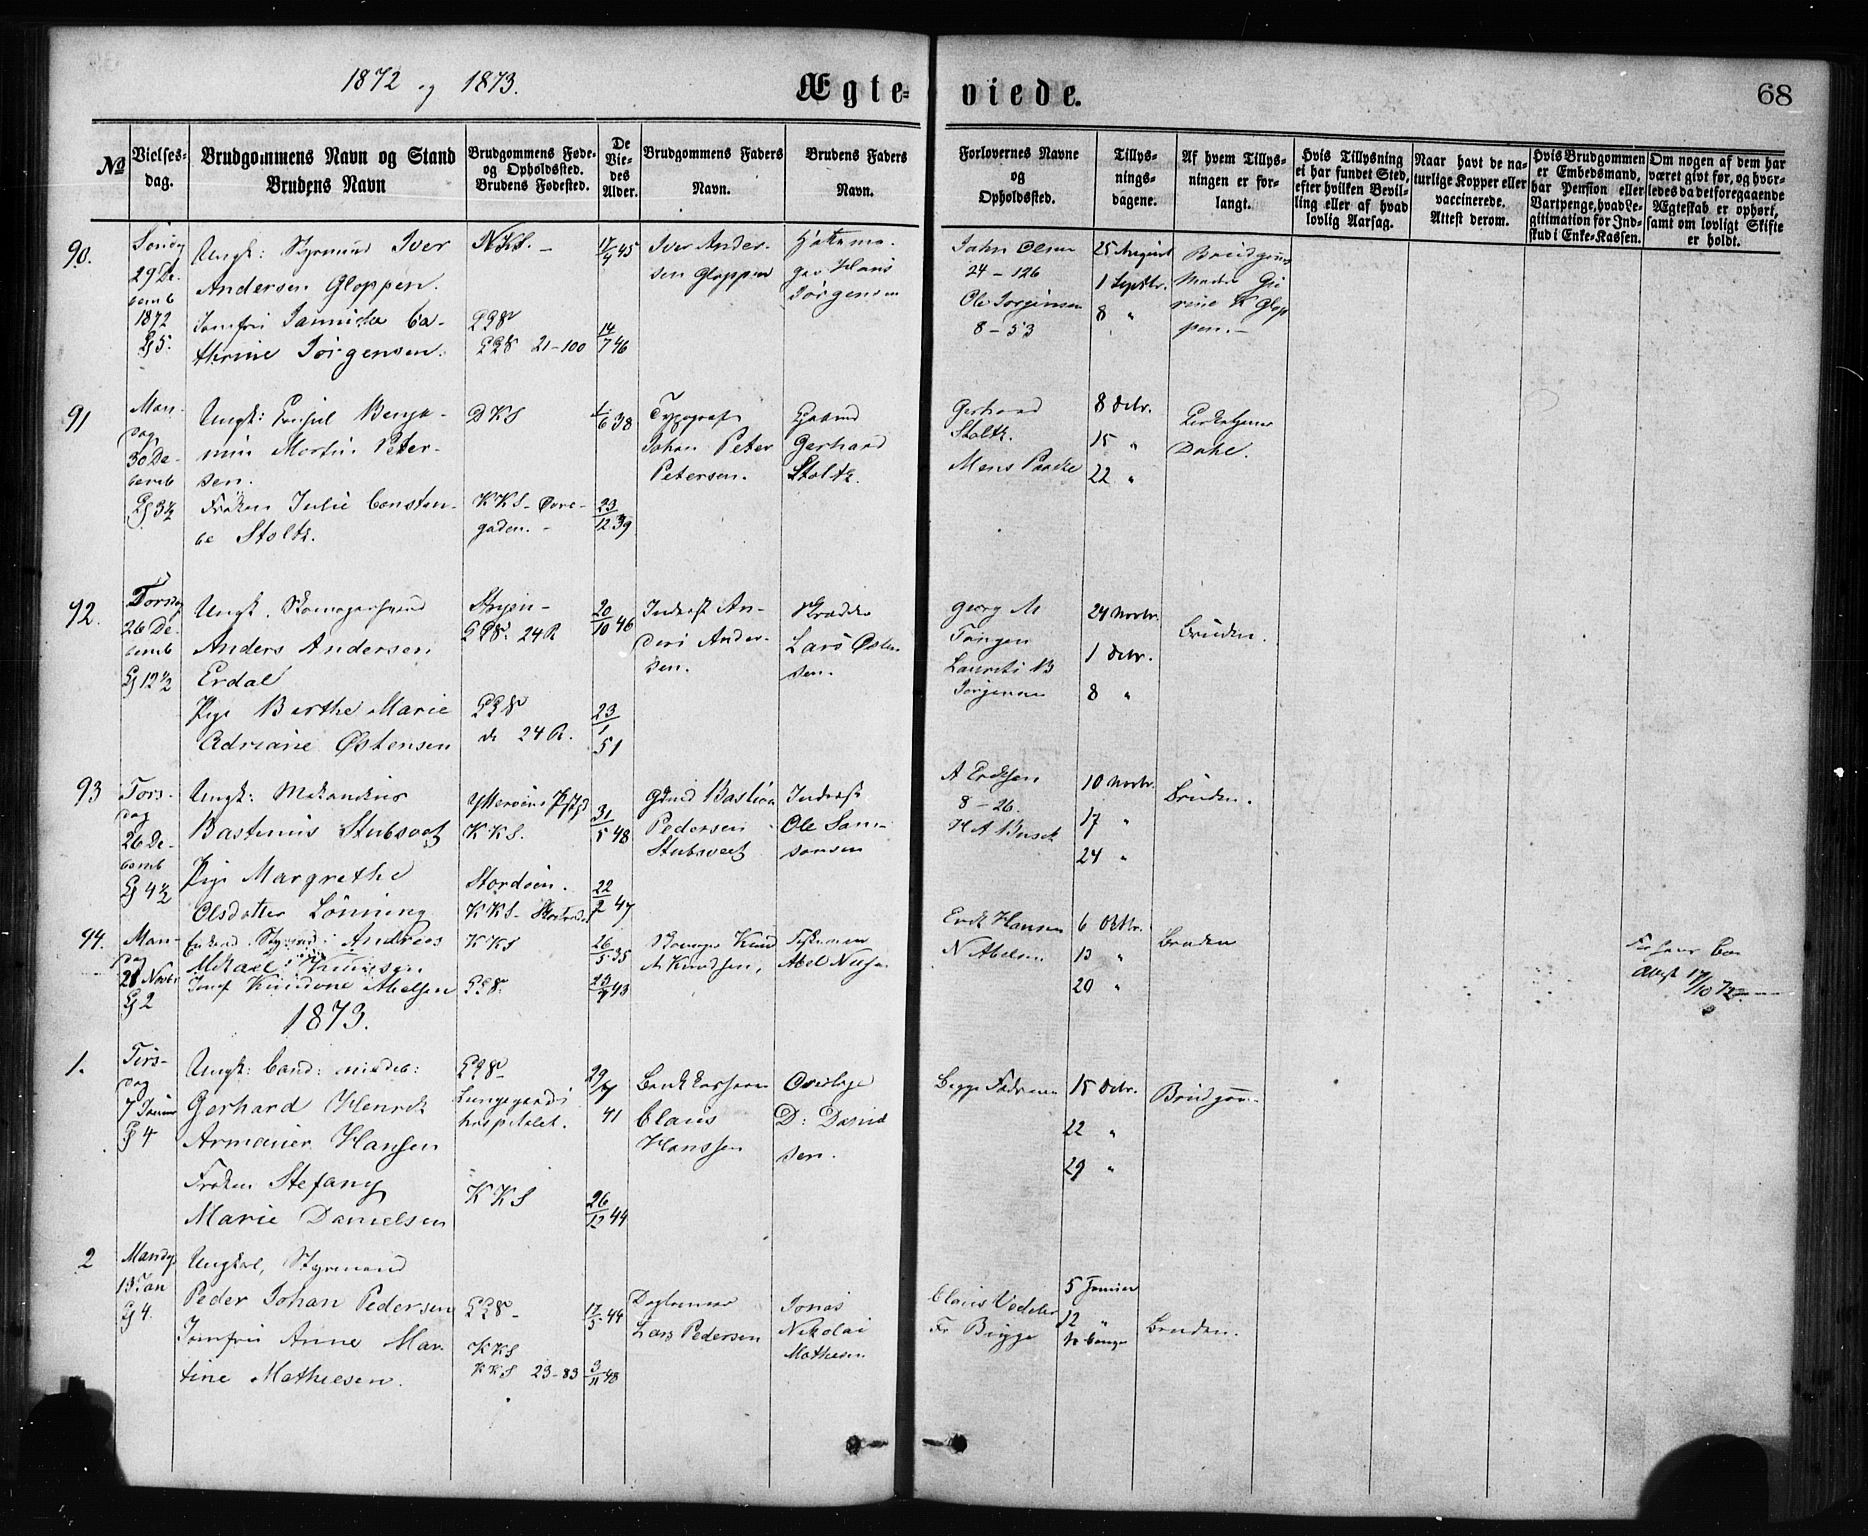 1872 og 1873.
Ægte-
viede.
68
№
Vielses-
dag.
Brudgommens Navn og Stand
Brudens Navn
Brudgommens Føde-
og Opholdssted.
Brudens Fødested.
De
Vie-
des
Alder.
Brudgommens Faders
Navn.
Brudens Faders
Navn.
Forlovernes Navne
og
Opholdssted.
Tillys-
nings-
dagene.
Af hvem Tillys-
ningen er for-
langt.
Hvis Tillysning
ei har fundet Sted,
efter hvilken Bevil-
ling eller af hvad
lovlig Aarsag.
Naar havt de na-
turlige Kopper eller
vaccinerede.
Attest derom.
Hvis Brudgommen
er Embedsmand,
har Pension eller
Vartpenge, hvad Le-
gitimation for Ind-
skud i Enke-Kassen.
Om nogen af dem har
været givt før, og hvor-
ledes da det foregaaende
Ægteskab er ophørt,
samt om lovligt Skifte
er holdt.
90.
Søndg
29 De-
cemb
1872
Kl 5.
Ungk: Styrmand Iver
Andersen Gloppen.
Jomfru Jannicke Ca-
thrine Jørgensen.
NKS. –
21–100
17/4 45
14/7 46
Iver Ander-
sen Gloppen
Hans
Jørgensen
John Olsen
24–126
Ole Jørgensen
8–53
25 August
1 Septbr.
8 "
Brudgms
Moder
Glop
pen. –
91
Man-
dag
30 De-
cemb
Kl 3½
Ungk: Benja-
min Martin Peter-
sen.
Frøken Julie Constan-
ce Stoltz.
DKS
KKS – Øvre-
gaden. –
1/6 38
23/12 39
Typograf
Johan Peter
Petersen.
Gerhard
Stoltz.
Gerhard
Stoltz.
Mons Paaske
8 Debr.
15 "
22 "
Kirketjener
Dahl.
92.
Torsdag
26 De-
cemb
Kl 12½
Ungk. Skomagersvend
Anders Andersen
Erdal
Pige Berthe Marie
Adriane Østensen
Stryen–
24 R
do 24 R.
20/10 46
23/1 51
Inderst An-
ders Ander-
sen.
Lars Østen
sen.
Georg M
Tangen
Laurits B
Jørgensen
24 Novbr.
1 Debr.
8 "
Bruden.
93
Tors-
dag
26 De-
cemb
Kl 4½
Ungk: Mekanikus
Bastinus Stubsveet
Pige Margrethe
Olsdatter Lønning
Ytterøens Pstgd
KKS.
Stordøen.
KKS–
31/5 48
22/2 47
Gmd Bastian
Pedersen
Stubsveet
Inderst
Ole Sam-
sonsen
A Eriksen
8–26.
H A Busch
10 Novbr.
17 "
24 "
Bruden.
94.
Man-
dag
Kl 2
Enkemd. Styrmd. Andreas
Mikael Knudsen
Jomf Knudone Abelsen
KKS
26/5 35
Skomager Knud
A Knudsen,
Abel Nilsen
Erik Hansen
N Abelsen
6 Oktbr.
13 "
20 "
Bruden
Attest 17/10 72
1873.
1.
Tirs-
dag
7 Januar
Kl 4
Ungk: Cand: medic:
Gerhard Henrik
Armauer Hansen
Frøken Stefany
Marie Danielsen
Lungegaards
hospitalet.
KKS
29/7
41
26/12 44
Bankkasserer
Claus
Hanssen
Overlæge
D: Daniel
sen.
Begge Fædrene
15 Debr.
22 "
29 "
Brudgom–
2
Mandg
13 Jan
Kl 4.
Ungkarl, Styrmand
Peder Johan Pedersen
Jomfru Anne Mar
tine Mathiesen.
KKS
KKS 23–83
17/5 44
3/11 48
Lars Pedersen
Jonas
Nikolai
Mathiesen
Claus Vedeler
Fr Brygge
5 Januar
12 "
Bruden.